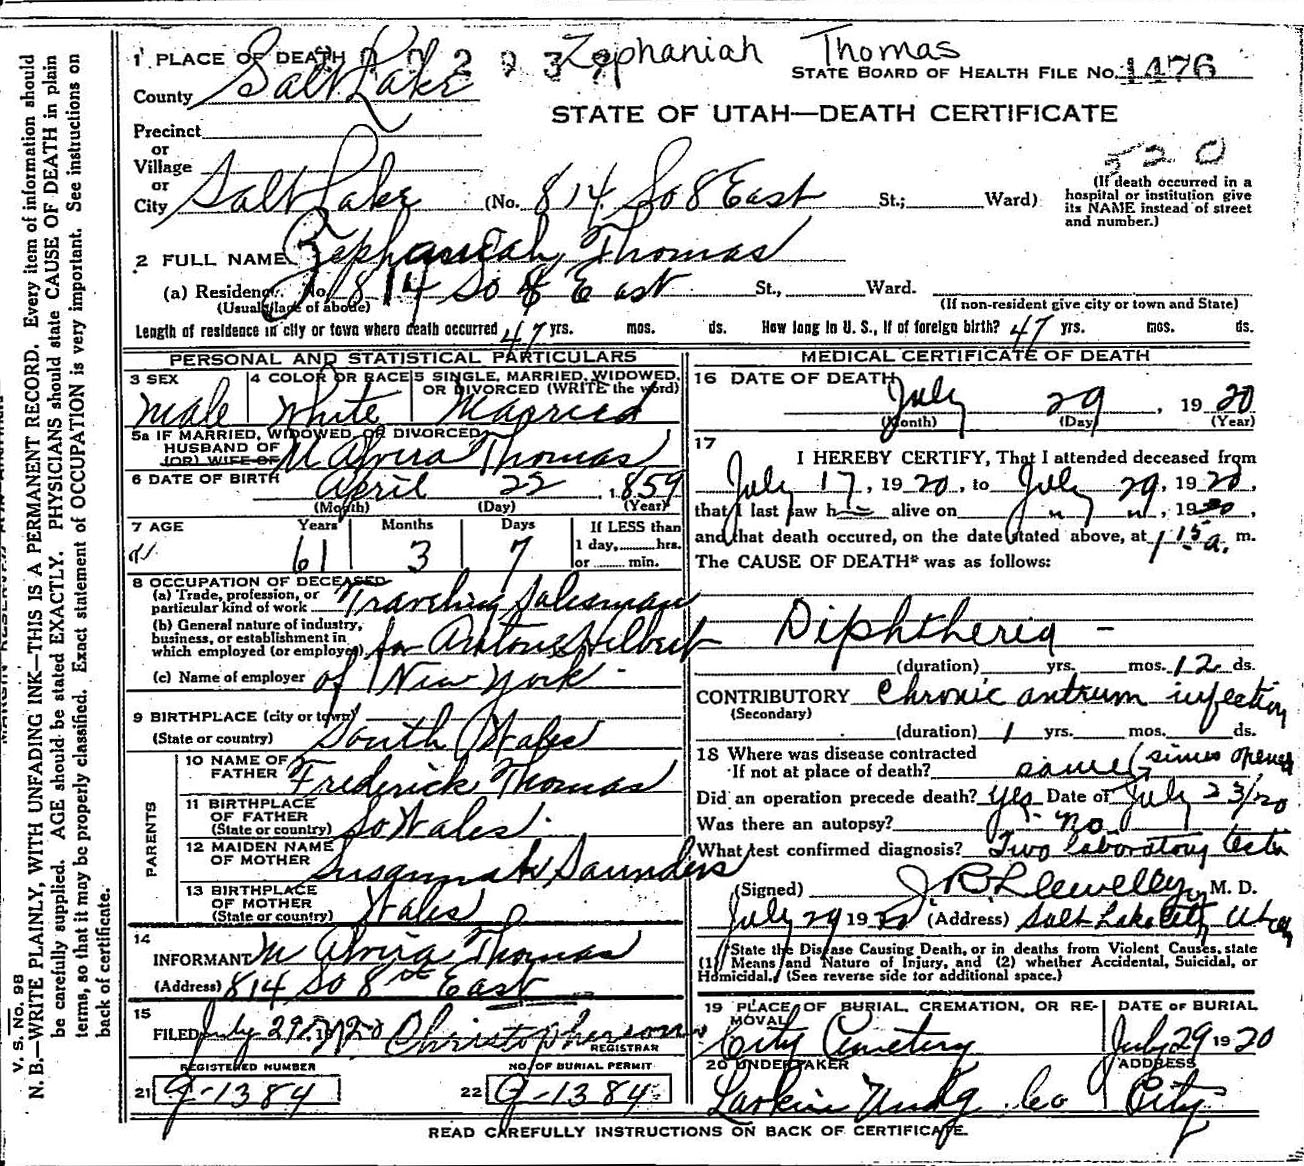 Zephaniah Thomas
1 PLACE OF DEATH
STATE BOARD OF HEALTH FILE NO. 1476
County Salt Lake
STATE OF UTAH—DEATH CERTIFICATE
Precinct
or
Village
or
520
City Salt Lake (No. 814 So 8 East St.; Ward)
(If death occurred in a
hospital or institution give
its NAME instead of street
and number.)
2 FULL NAME Zephaniah Thomas
(a) Residence. No. 814 So 8 East St., Ward.
(Usual place of abode) (If non-resident give city or town and State)
Length of residence in city or town where death occurred 47 yrs. mos. ds. How long in U. S., if of foreign birth? 47 yrs. mos. ds.
PERSONAL AND STATISTICAL PARTICULARS
3 SEX 4 COLOR OR RACE 5 SINGLE, MARRIED, WIDOWED,
OR DIVORCED (WRITE the word)
Male White Married
5a IF MARRIED, WIDOWED, OR DIVORCED
HUSBAND OF
(OR) WIFE OF M Alvira Thomas
6 DATE OF BIRTH April 22, 1859
(Month) (Day) (Year)
7 AGE Years Months Days If LESS than
61 3 7 1 day, hrs.
or min.
8 OCCUPATION OF DECEASED
(a) Trade, profession, or
particular kind of work Traveling Salesman
(b) General nature of industry,
business, or establishment in
which employed (or employer) for
(c) Name of employer of New York
9 BIRTHPLACE (city or town)
(State or country) South Wales
PARENTS
10 NAME OF
FATHER Frederick Thomas
11 BIRTHPLACE
OF FATHER
(State or country) So Wales
12 MAIDEN NAME
OF MOTHER Susannah Saunders
13 BIRTHPLACE
OF MOTHER
(State or country) Wales
14
INFORMANT M Alvira Thomas
(Address) 814 So 8th East
15
FILED July 29 Christopherson
REGISTRAR
REGISTERED NUMBER NO. OF BURIAL PERMIT
21 G-1384 22 G-1384
MEDICAL CERTIFICATE OF DEATH
16 DATE OF DEATH
July 29, 1920
(Month) (Day) (Year)
17
I HEREBY CERTIFY, That I attended deceased from
July 17, 1920, to July 29, 1920,
that I last saw h alive on " ", 1920,
and that death occured, on the date stated above, at 1 15 a. m.
The CAUSE OF DEATH* was as follows:
Diphtheria -
(duration) yrs. mos. 12 ds.
CONTRIBUTORY Chronic antrum infection
(Secondary)
(duration) 1 yrs. mos. ds.
18 Where was disease contracted
If not at place of death? same (sinus opened
Did an operation precede death? Yes Date of July 23/20
Was there an autopsy? no
What test confirmed diagnosis? Two laboratory tests
(Signed) J R Llewellyn, M. D.
July 29 1920 (Address) Salt Lake City Utah
*State the Disease Causing Death, or in deaths from Violent Causes, state
(1) Means and Nature of Injury, and (2) whether Accidental, Suicidal, or
Homicidal. (See reverse side for additional space.)
19 PLACE OF BURIAL, CREMATION, OR RE- DATE OF BURIAL
MOVAL
City Cemetery July 29 1920
20 UNDERTAKER ADDRESS
Larkin Undg. Co City
READ CAREFULLY INSTRUCTIONS ON BACK OF CERTIFICATE.
V. S. No. 98
N. B.—WRITE PLAINLY, WITH UNFADING INK—THIS IS A PERMANENT RECORD. Every item of information should
be carefully supplied. AGE should be stated EXACTLY. PHYSICIANS should state CAUSE OF DEATH in plain
terms, so that it may be properly classified. Exact statement of OCCUPATION is very important. See instructions on
back of certificate.